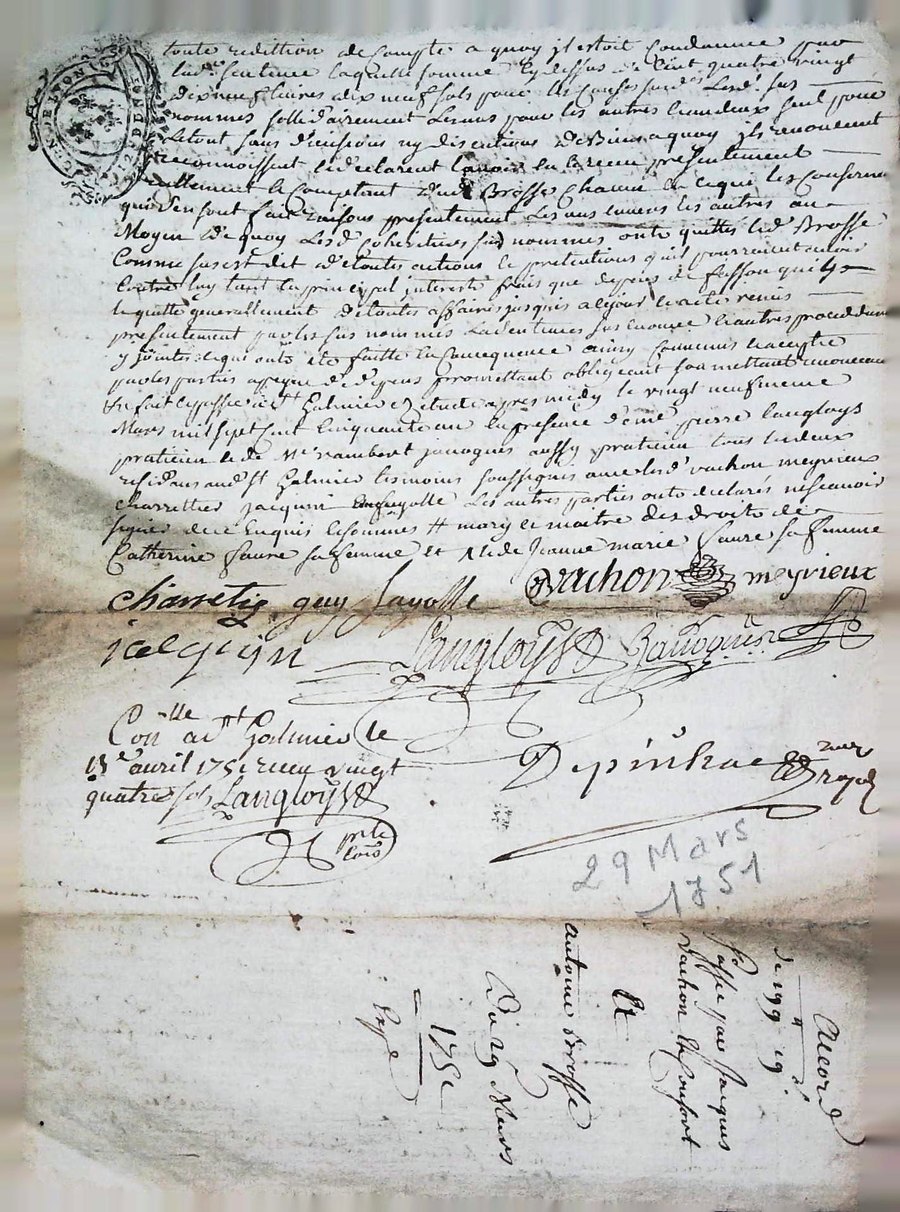 toute reddittion de Compte a quoy jl estoit Condannée par
lad. sentence laquelle somme Cy dessus de Cent quatre vingt
dix neuf livres dix neuf sols pour les Causes sus.
nommés sollidairement Lesuns pour les autres Lundeux seul pour
Letout sans divisions ny discutions a quoy jls renoncent
reconnoissent & declarent Lavoir presentement
reellement & Comptant dud Brosse Chacun Ce qui les Conserne
qui sen sont fait raisons presentement Les uns envers les autres au
Moyen de quoy Lesd Coheritiers sus nommés onts quittés led Brosse
Comme susest dit detoutes actions & pretentions quil pourroient avoir
Contre luy tant en principal interests frais que depens de fasson quils
le quitte generallement detoutes affaires jusques a cejour
presentement par les sus nommés Ladsentence sus enoncé & autres procedures
y jointes Cequi onts été faitte en Consequence ainsy Convenus & accepté
par les parties apeyne de depens promettant obligeant soumettant renonceant
fait & passé a St Galmier Etude apres midy le vingt neufvieme
Mars mil sept Cent Cinquante un en presence de me pierre Langloys
praticien & de rambert janoques aussy praticien tous Lesdeux
residens aud St Galmier temoins soussignés avec lesd vachon meyrieux
charrettier jacquin Les autres parties onts declarés nesçavoir
signer de ce Enquis & sommés # mary & maitre des droits de
Catherine faure sa femme et de Jeanne marie faure sa femme
charretie guy fayolle vachon meyrieux
jacquin Langloys
Con.lle a St Galmier le
13e avril 1751 recu vingt
quatre sols Langloys
Depinhac
29 Mars
1751
Acord
de 199 19
Passé par Jacques
Vachon & Consort
A
antoine Brosse
Du 29 Mars
1751
Expe